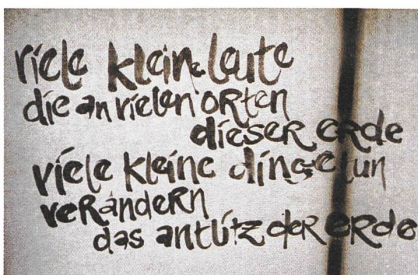 viele kleine leute
die an vielen orten
dieser erde
viele kleine dinge tun
verändern
das antlitz der erde